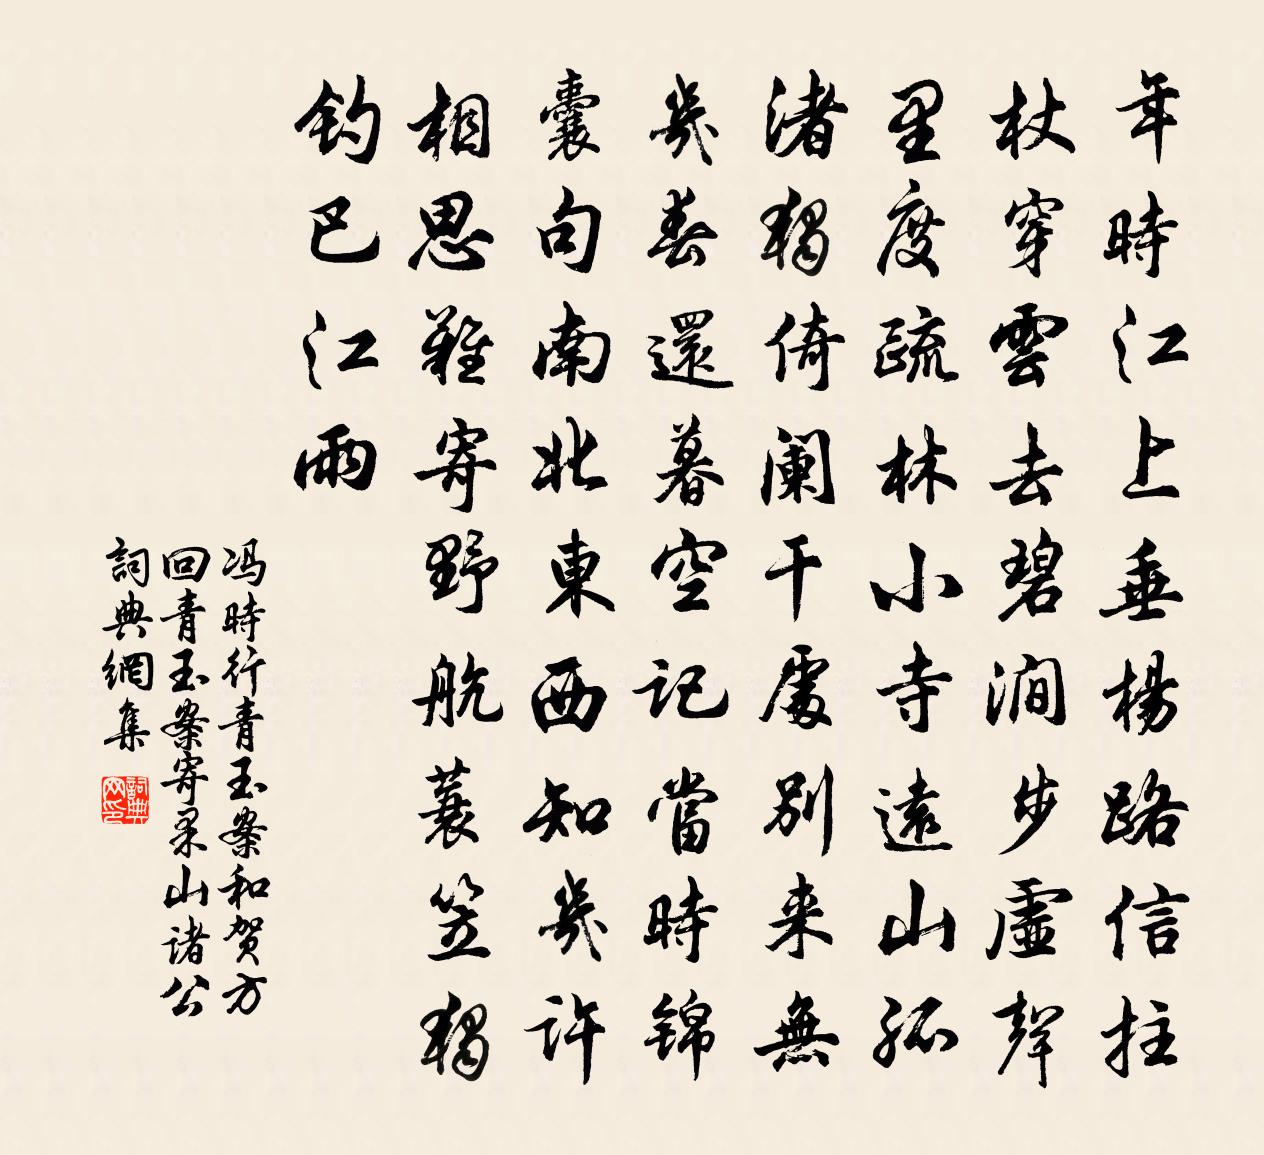 年時江上垂楊路信拄
杖穿雲去碧澗步虛聲
里度疏林小寺遠山孤
渚獨倚闌干處別来無
幾春還暮空記當時錦
囊句南北東西知幾許
相思難寄野航蓑笠獨
釣巴江雨
冯時行青玉案和贺方
回青玉案寄果山诸公
詞典網集
詞典网印